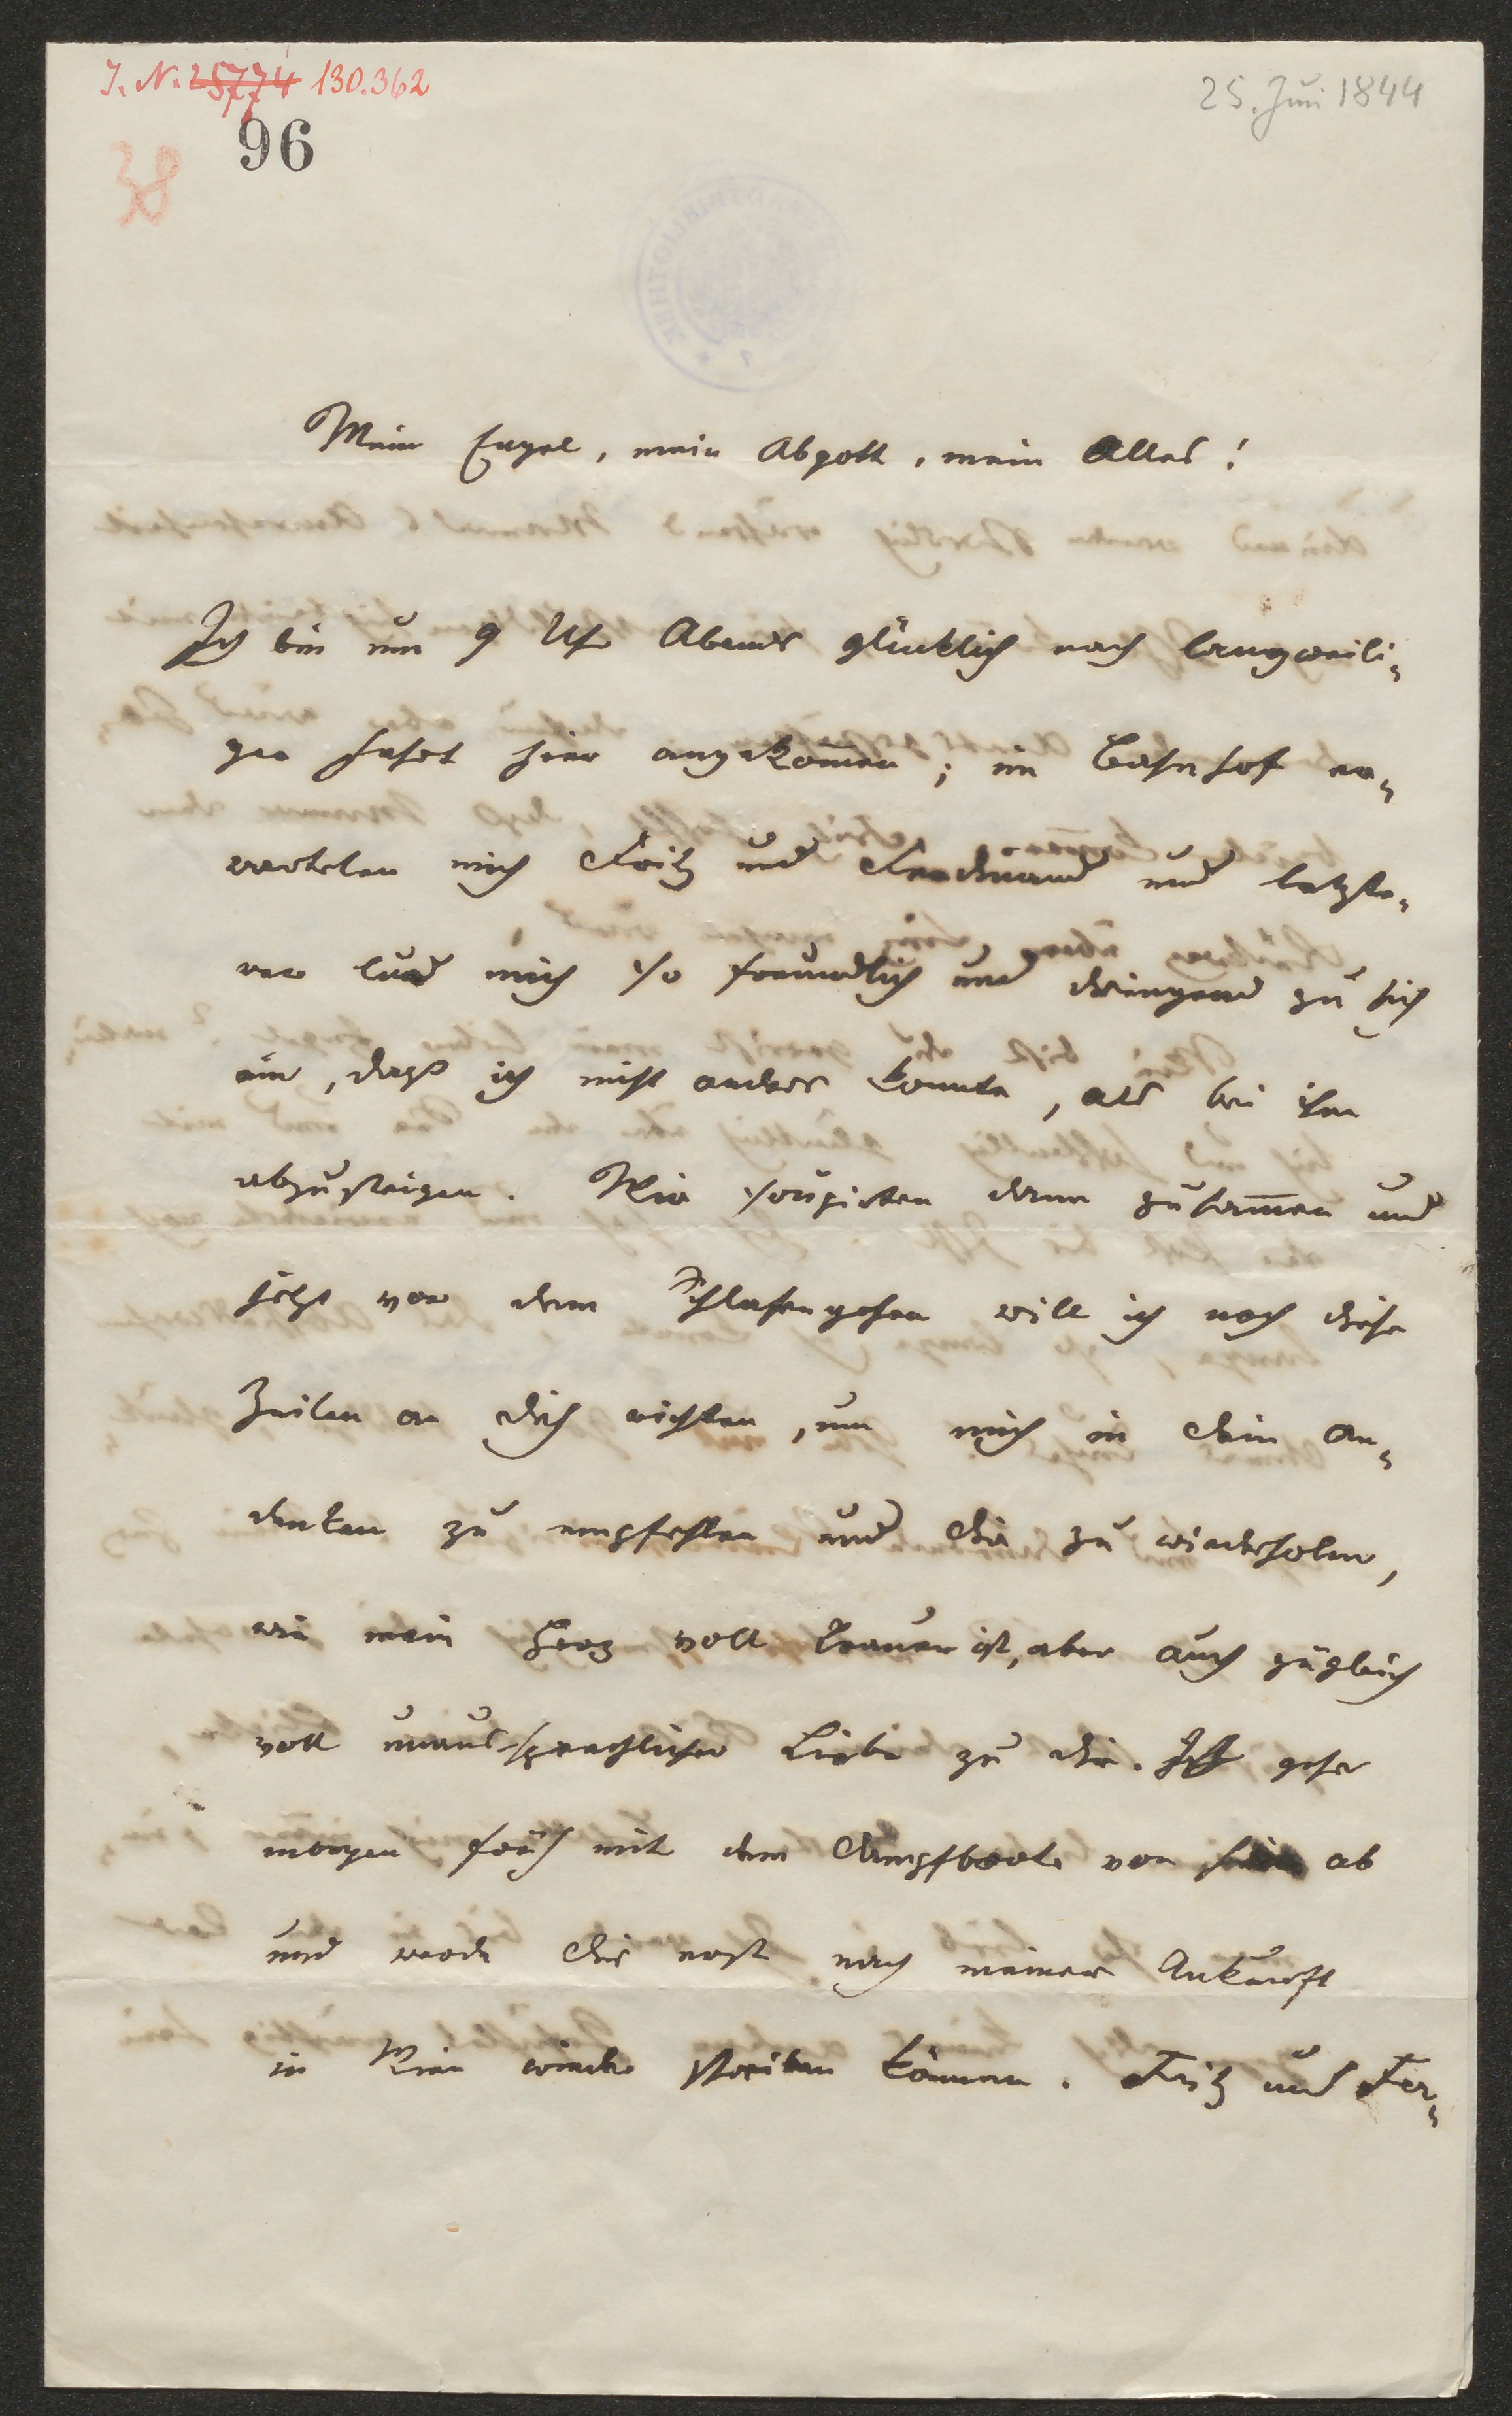 I. N. 25774 130.362
25. Juni 1844
96
38
Mein Engel, mein Abgott, mein Alles!
Ich bin um 9 Uhr Abends glücklich nach langweili-
ger Fahrt hier angekom̅en; im Bahnhof er-
warteten mich Fritz und Ferdinand und letzte-
rer lud mich so freundlich und dringend zu sich
ein, daß ich nicht anders konnte, als bei ihm
abzusteigen. Wir soupirten dann zusam̅en und
jetzt vor dem Schlafengehen will ich noch diese
Zeilen an dich richten, um mich in dein An-
denken zu empfehlen und dir zu wiederholen,
wie mein Herz voll Trauer ist, aber auch zugleich
voll unaussprechlicher Liebe zu dir. Ich gehe
morgen früh mit dem Dampfboote von hier ab
und werde dir erst nach meiner Ankunft
in Wien wieder schreiben können. Fritz und Fer-